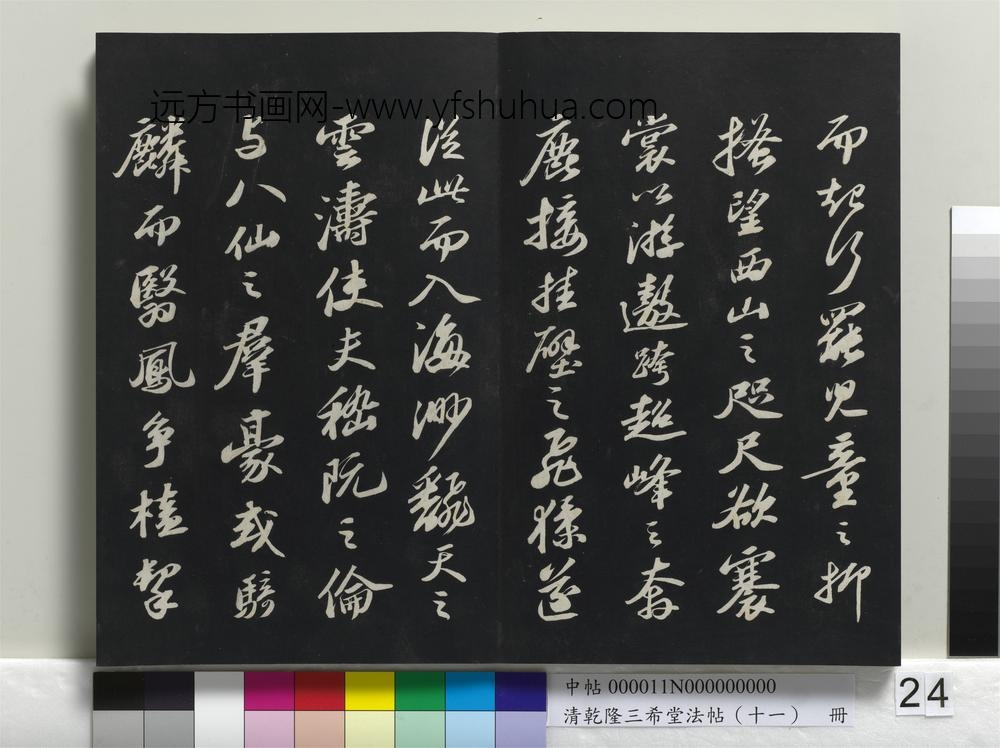 远方书画网-www.yfshuhua.com
而起行罷兒童之抑
搔望西山之咫尺欲褰
裳以游遨跨超峰之奔
鹿接挂壁之飛猱遂
從此而入海渺飜天之
雲濤使夫嵇阮之倫
与八仙之羣豪或騎
麟而翳鳳争榼挈
中帖 000011N000000000
清乾隆三希堂法帖（十一） 冊
24